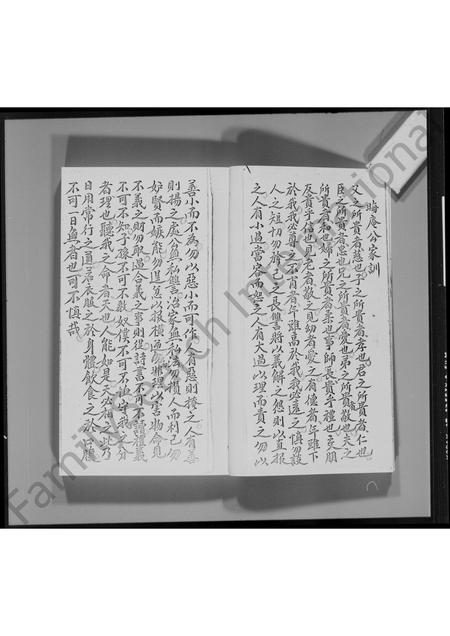 晦庵公家訓
父之所貴者慈也子之所貴者孝也君之所貴者仁也
臣之所貴者忠也兄之所貴者愛也弟之所貴者敬也夫之
所貴者和也婦之所貴者柔也事師長貴乎禮也交朋
友貴乎信也見老者敬之見幼者愛之有德者年雖下
於我我必尊之不肖者年雖高於我我必遠之慎勿談
人之短切勿矜己之長讐者以義解之怨者則以直報
之人有小過當容而恕之人有大過以理而責之勿以
善小而不為勿以惡小可作人有惡則掩之人有善
則揚之處公無私讐治家無私法勿損人而利己勿
妒賢而嫉能勿逞忿以報橫逆勿非理以害物命見
不義之財勿取遇合義之事則從詩書不可不讀禮義
不可不知子孫不可不教奴僕不可不恤守我之分
者理也聽我之命者天也人能如是天必相之此乃
日用常行之道若衣服之於身體飲食之於口腹
不可一日無者也可不慎哉
FamilySearch International